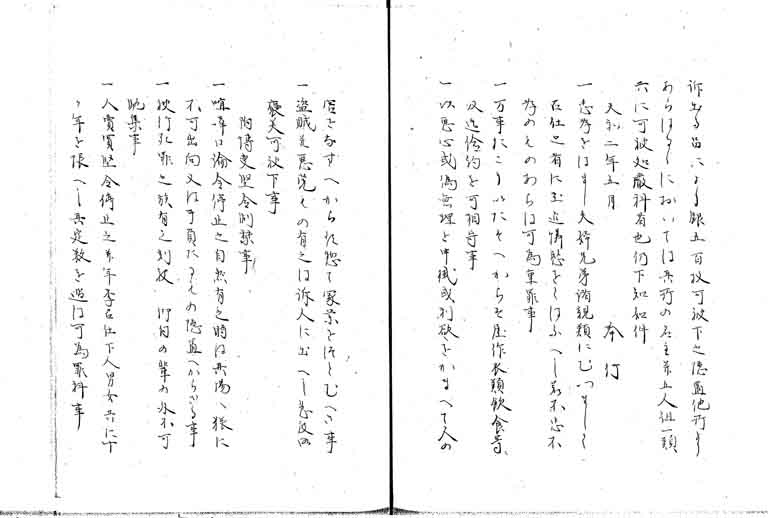 訴出る品により銀五百枚可被下之隠置他所より
あらはるゝにおいては其所の名主并五人組一類
共に可被処厳科者也仍下知如件
天和二年五月
奉行
一忠孝をはけまし夫婦兄弟諸親類にむつましく
召仕之者に至迄憐愍をくはふへし若不忠不
孝のものあらは可為重罪事
一万事にこりいたすへからす屋作衣類飲食等
及迄倹約を可相守事
一以悪心或偽無理を申掛或利欲をかまへて人の
害をなすへからす惣て家業をつとむへき事
一盗賊并悪党もの有之は訴人に出へし急度御
褒美可被下事
附博奕堅令制禁事
一喧嘩口論令停止之自然有之時は其場へ猥に
不可出向又は手負たるもの隠置へからさる事
一被行死罪之族有之刻被仰付の輩の外不可
馳集事
一人売買堅令停止之并年季召仕下人男女共に十
ヶ年を限へし其定数を過は可為罪科事